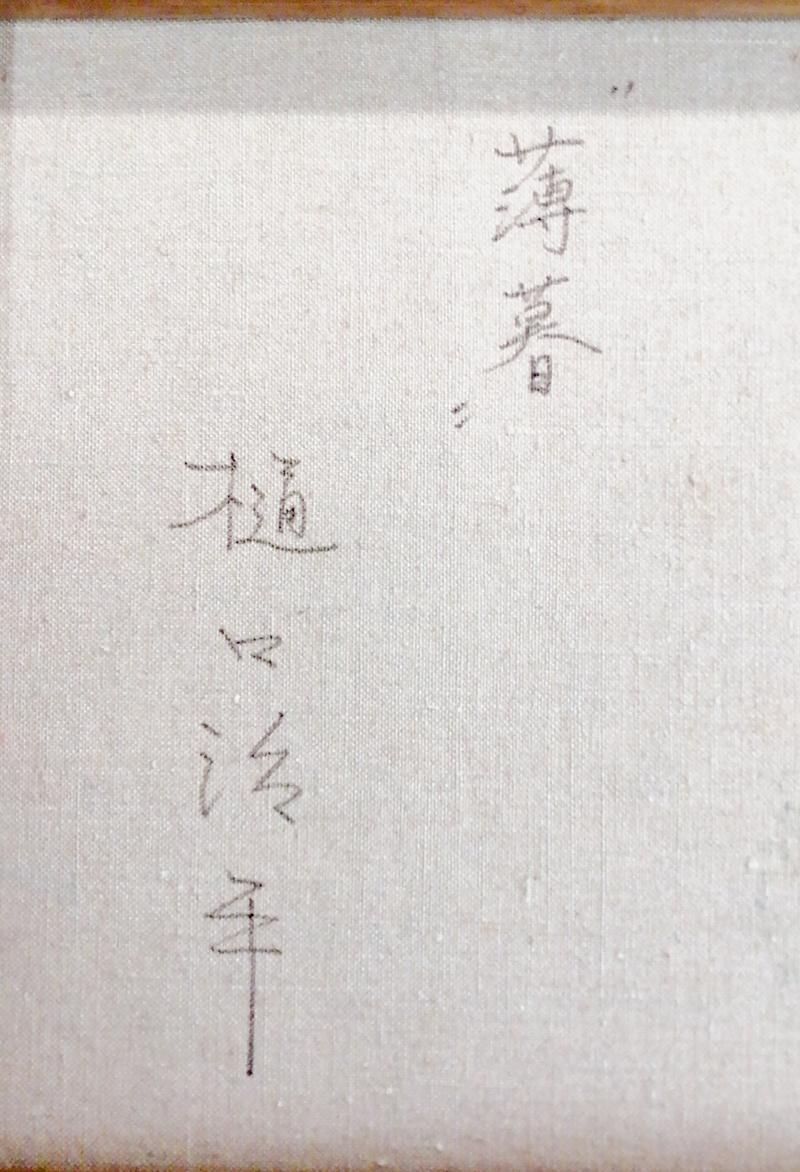 "薄暮"
樋口治平